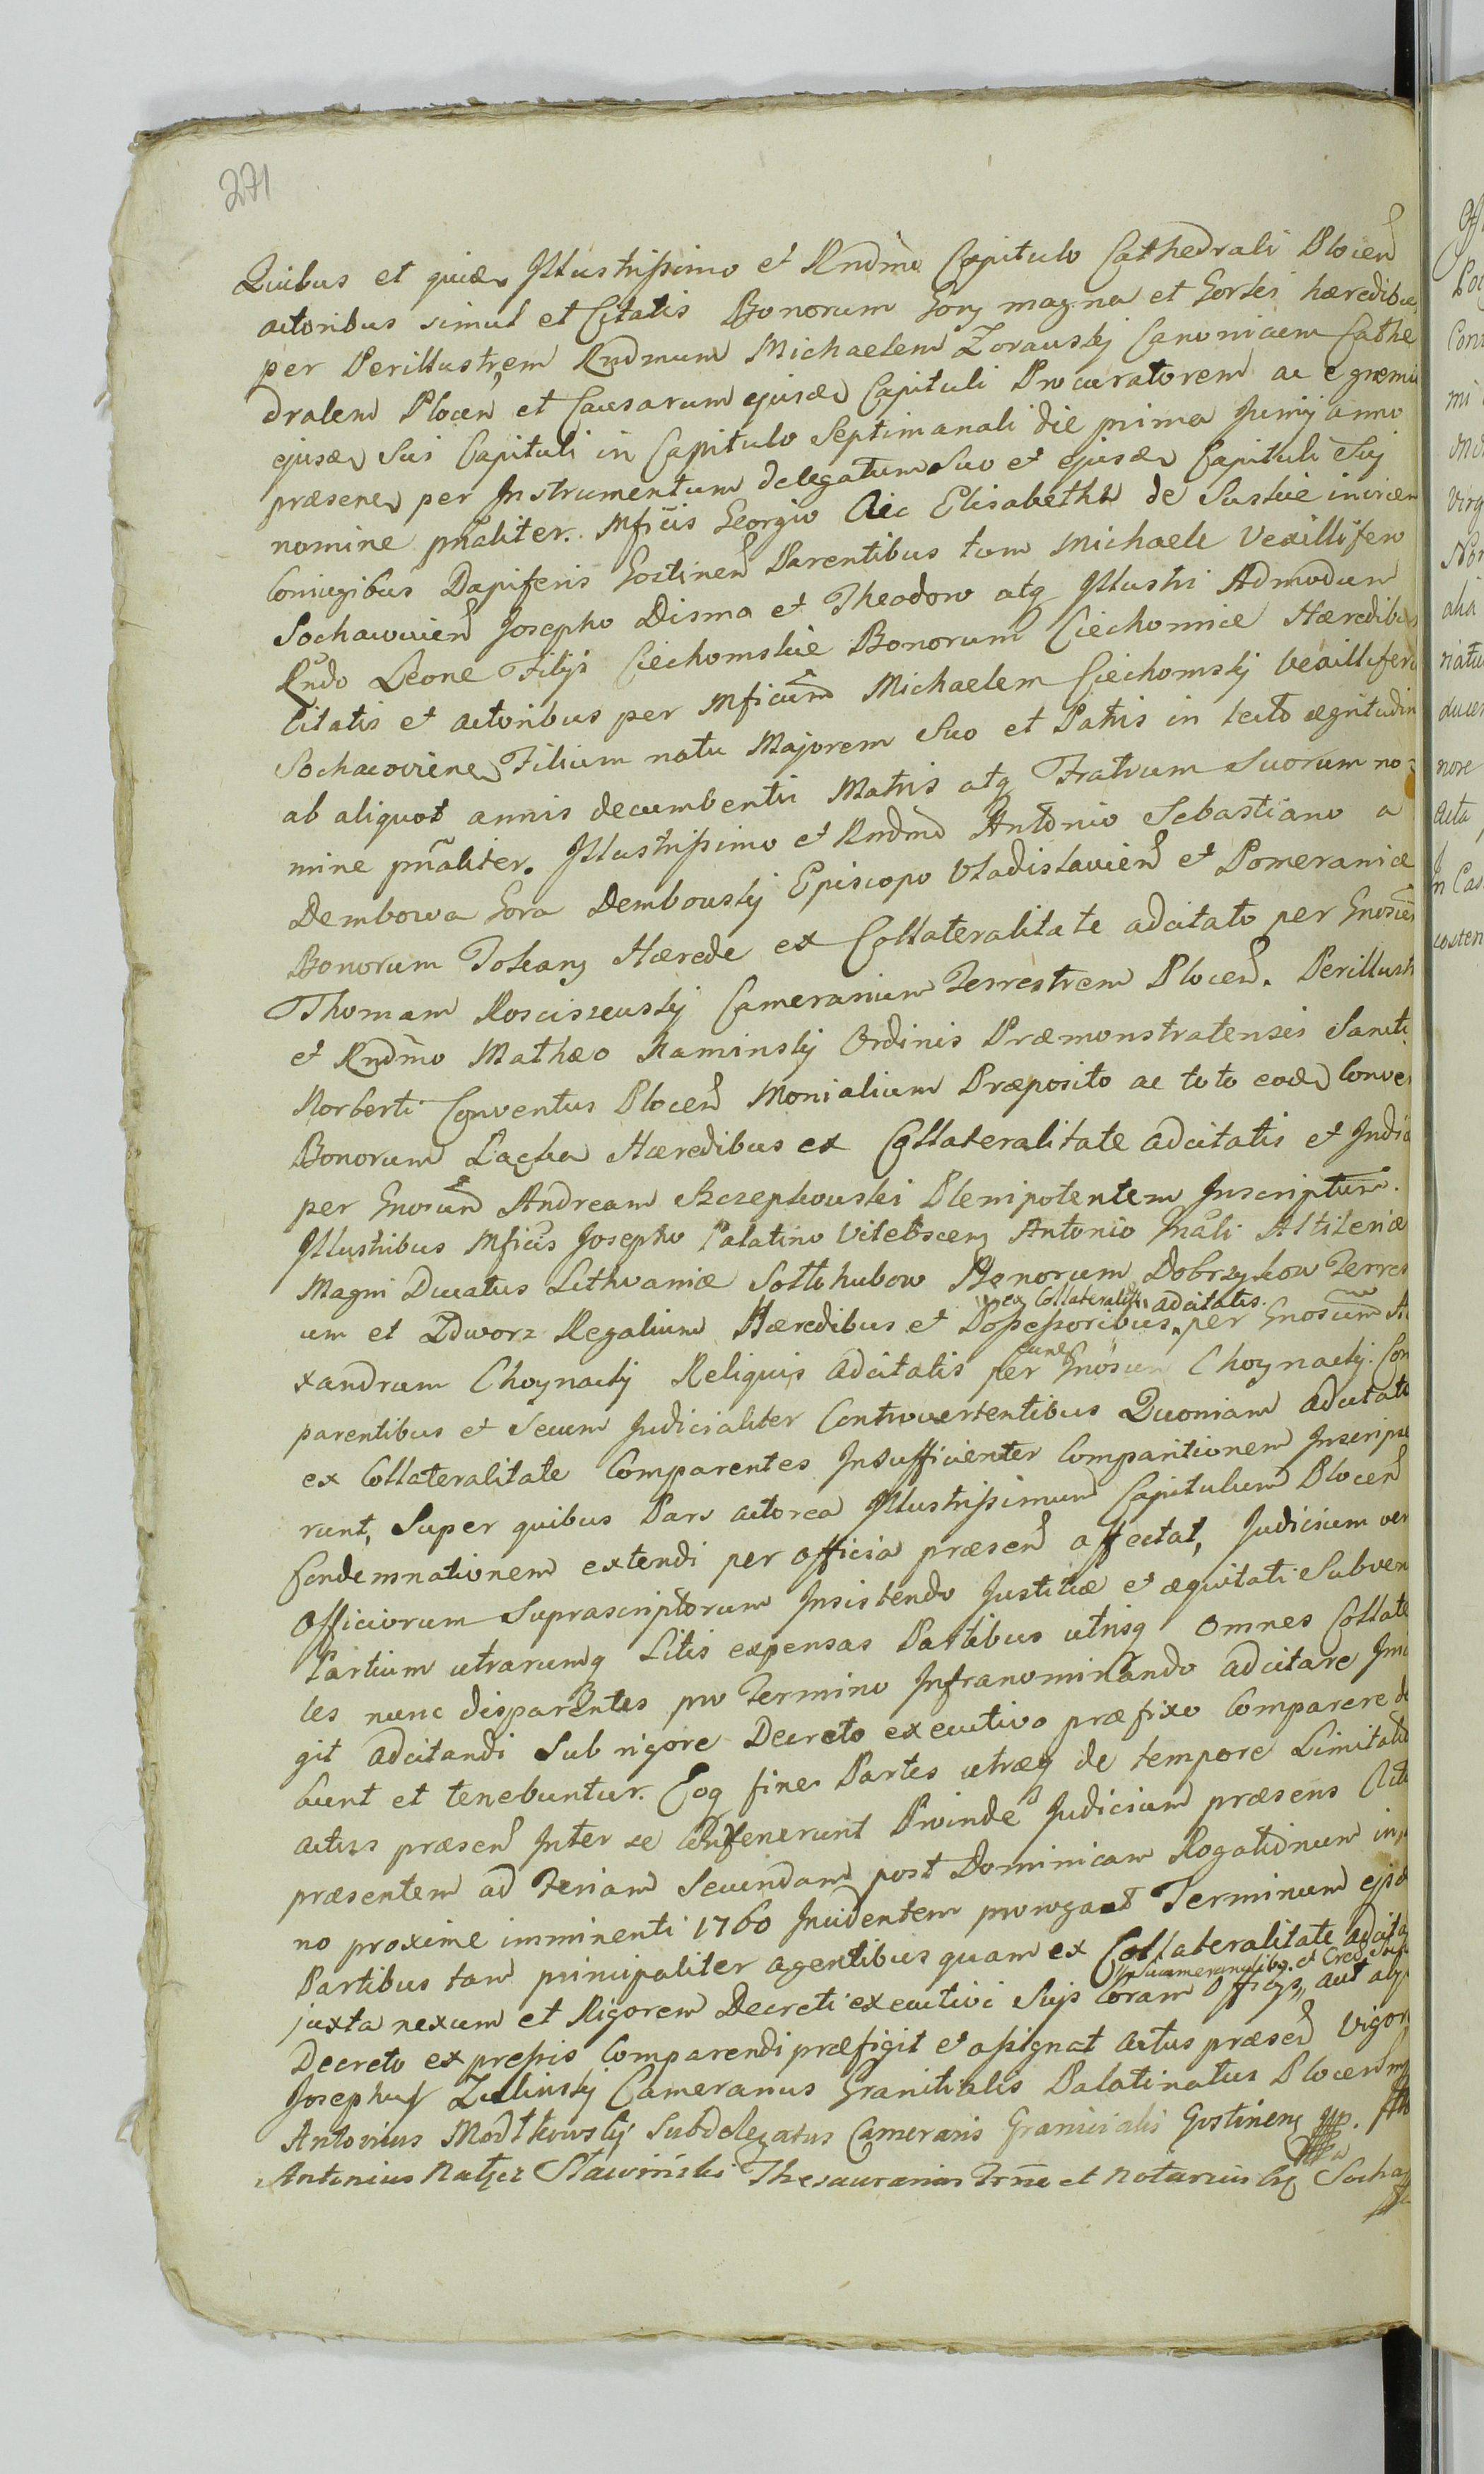 271
Quibus et quidem Illustrissimo et Rndmo Capitulo Cathedrali Plocen
actoribus simul et Citatis Bonorum Gory magna et Gorki hæredibus
per Perillustrem Rndmum Michaelem Zorawskj Canonicum Cathe
dralem Plocen et Causarum ejusdem Capituli Procuratorem ac e gremio
ejusdem Sui Capituli in Capitulo Septimanali die prima Junij anno
præsenen per Instrumentum delegatum Suo et ejusdem Capituli Suj
nomine pnaliter. Mficis Georgio Ac Elisabetha de Suskie invicem
Coniugibus Dapiferis Gostinen Parentibus tum Michaele Vexillifero
Sochaczovien Josepho Disma et Theodoro atq Illustri Admodum
Rndo Leone Filijs Ciechomskie Bonorum Ciechomice Hæredibus
Citatis et actoribus per Mficum Michaelem Ciechomskj Vexilliferum
Sochacovienen Filium natu Majorem Suo et Patris in lecto ægritudin
ab aliquot annis decumbentis Matris atq Fratrum Suorum no=
mine pnaliter. Illustrissimo et Rndmo Antonio Sebastiano a
Dembowa Gora Dembowskj Episcopo Vladislavien et Pomeraniæ
Bonorum Tokary Hærede ex Collateralitate adcitato per Gnosum
Thomam Rosciszewskj Camerarium Terrestrem Plocen. Perillustr
et Rndmo Mathæo Kaminskj Ordinis Præmonstratensis Sancti
Norberti Conventus Plocen Monialium Præposito ac toto eodem Conve
Bonorum Lącka Hæredibus ex Collateralitate adcitatis et Indic
per Gnosum Andream Szczepkowski Plenipotentem Inscriptum.
Illustribus Mficis Josepho Palatino Vitebscen Antonio Gnali Altileriæ
Magni Ducatus Lithvaniæ Sollohubow Bonorum Dobrzykow Terres
um et Zdworz Regalium Hæredibus et Possessoribus ex Collateralit adcitatis. per Gnosum A
xandrum Choynackj Reliquis adcitatis per eund Gnosum Choynackj. Com
parentibus et Secum Judicialiter Controvertentibus Quoniam adcitati
ex Collateralitate Comparentes Insufficienter Comparitionem Inscripse
runt, Super quibus Pars actorea Illustrissimum Capitulum Plocen
Condemnationem extendi per officia præsen affectat, Judicium ver
Officiorum Suprascriptorum Insistendo Justitiæ et æquitati Subven
Partium utrarumq Litis expensas Partibus utrisq omnes Collate
les nunc disparentes pro Termino Infranominando adcitare Inj
git adcitandi Sub rigore Decreto executivo præfixo Comparere de
bunt et tenebuntur. Eoq fine Partes utræq de tempore Limitatio
actus præsen Inter se Convenerunt Proinde Judicium præsens Actu
præsentem ad Feriam Secundam post Dominicam Rogationum in
no proxime imminenti 1760 Incidentem prorogat Terminum ejsd
Partibus tam principaliter agentibus quam ex Collateralitate adcita
juxta nexum et Rigorem Decreti executivi Suis Coram Officijs Succamerarialibq. et aut
Decreto expressis Comparendi præfigit et assignat actus præsen Vigor
Josephus Zulinskj Camerarius Granitialis Palatinatus Plocen mp
Antonius Modtkowskj Subdelegatus Camerarij Granicialis Gostinen mp.
Antonius Nałęcz Sławiński Thesaurarius Trnæ et Notarius Socha